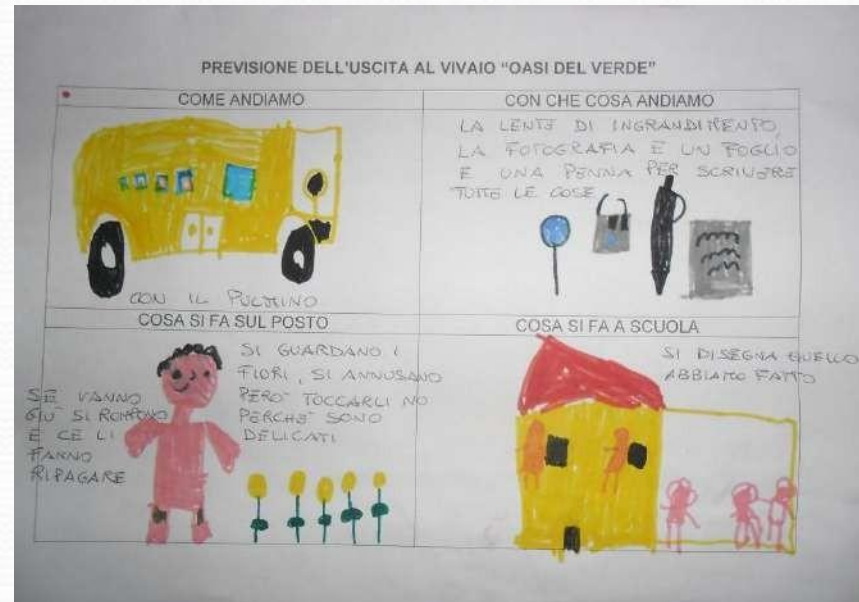 PREVISIONE DELL'USCITA AL VIVAIO "OASI DEL VERDE"
COME ANDIAMO
CON IL PULMINO
CON CHE COSA ANDIAMO
LA LENTE DI INGRANDIMENTO,
LA FOTOGRAFIA E UN FOGLIO
E UNA PENNA PER SCRIVERE
TUTTE LE COSE
COSA SI FA SUL POSTO
SI GUARDANO I
FIORI, SI ANNUSANO
PERO' TOCCARLI NO
PERCHE' SONO
DELICATI
SE VANNO
GIU' SI ROMPONO
E CE LI
FANNO
RIPAGARE
COSA SI FA A SCUOLA
SI DISEGNA QUELLO
ABBIAMO FATTO